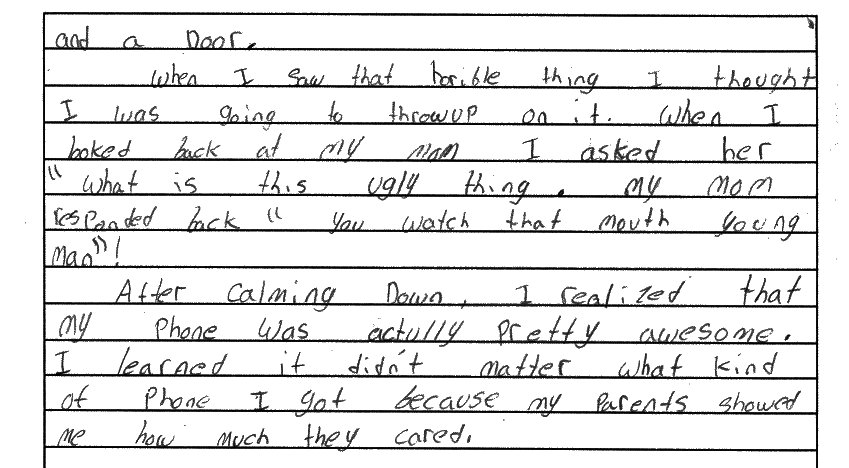 and a Door.
When I saw that horible thing I thought
I was going to throwup on it. When I
looked back at my mom I asked her
"what is this ugly thing. my mom
responded back "you watch that mouth young
man"!
After calming Down, I realized that
my Phone was actully pretty awesome.
I learned it didn't matter what kind
of Phone I got because my parents showed
me how much they cared.